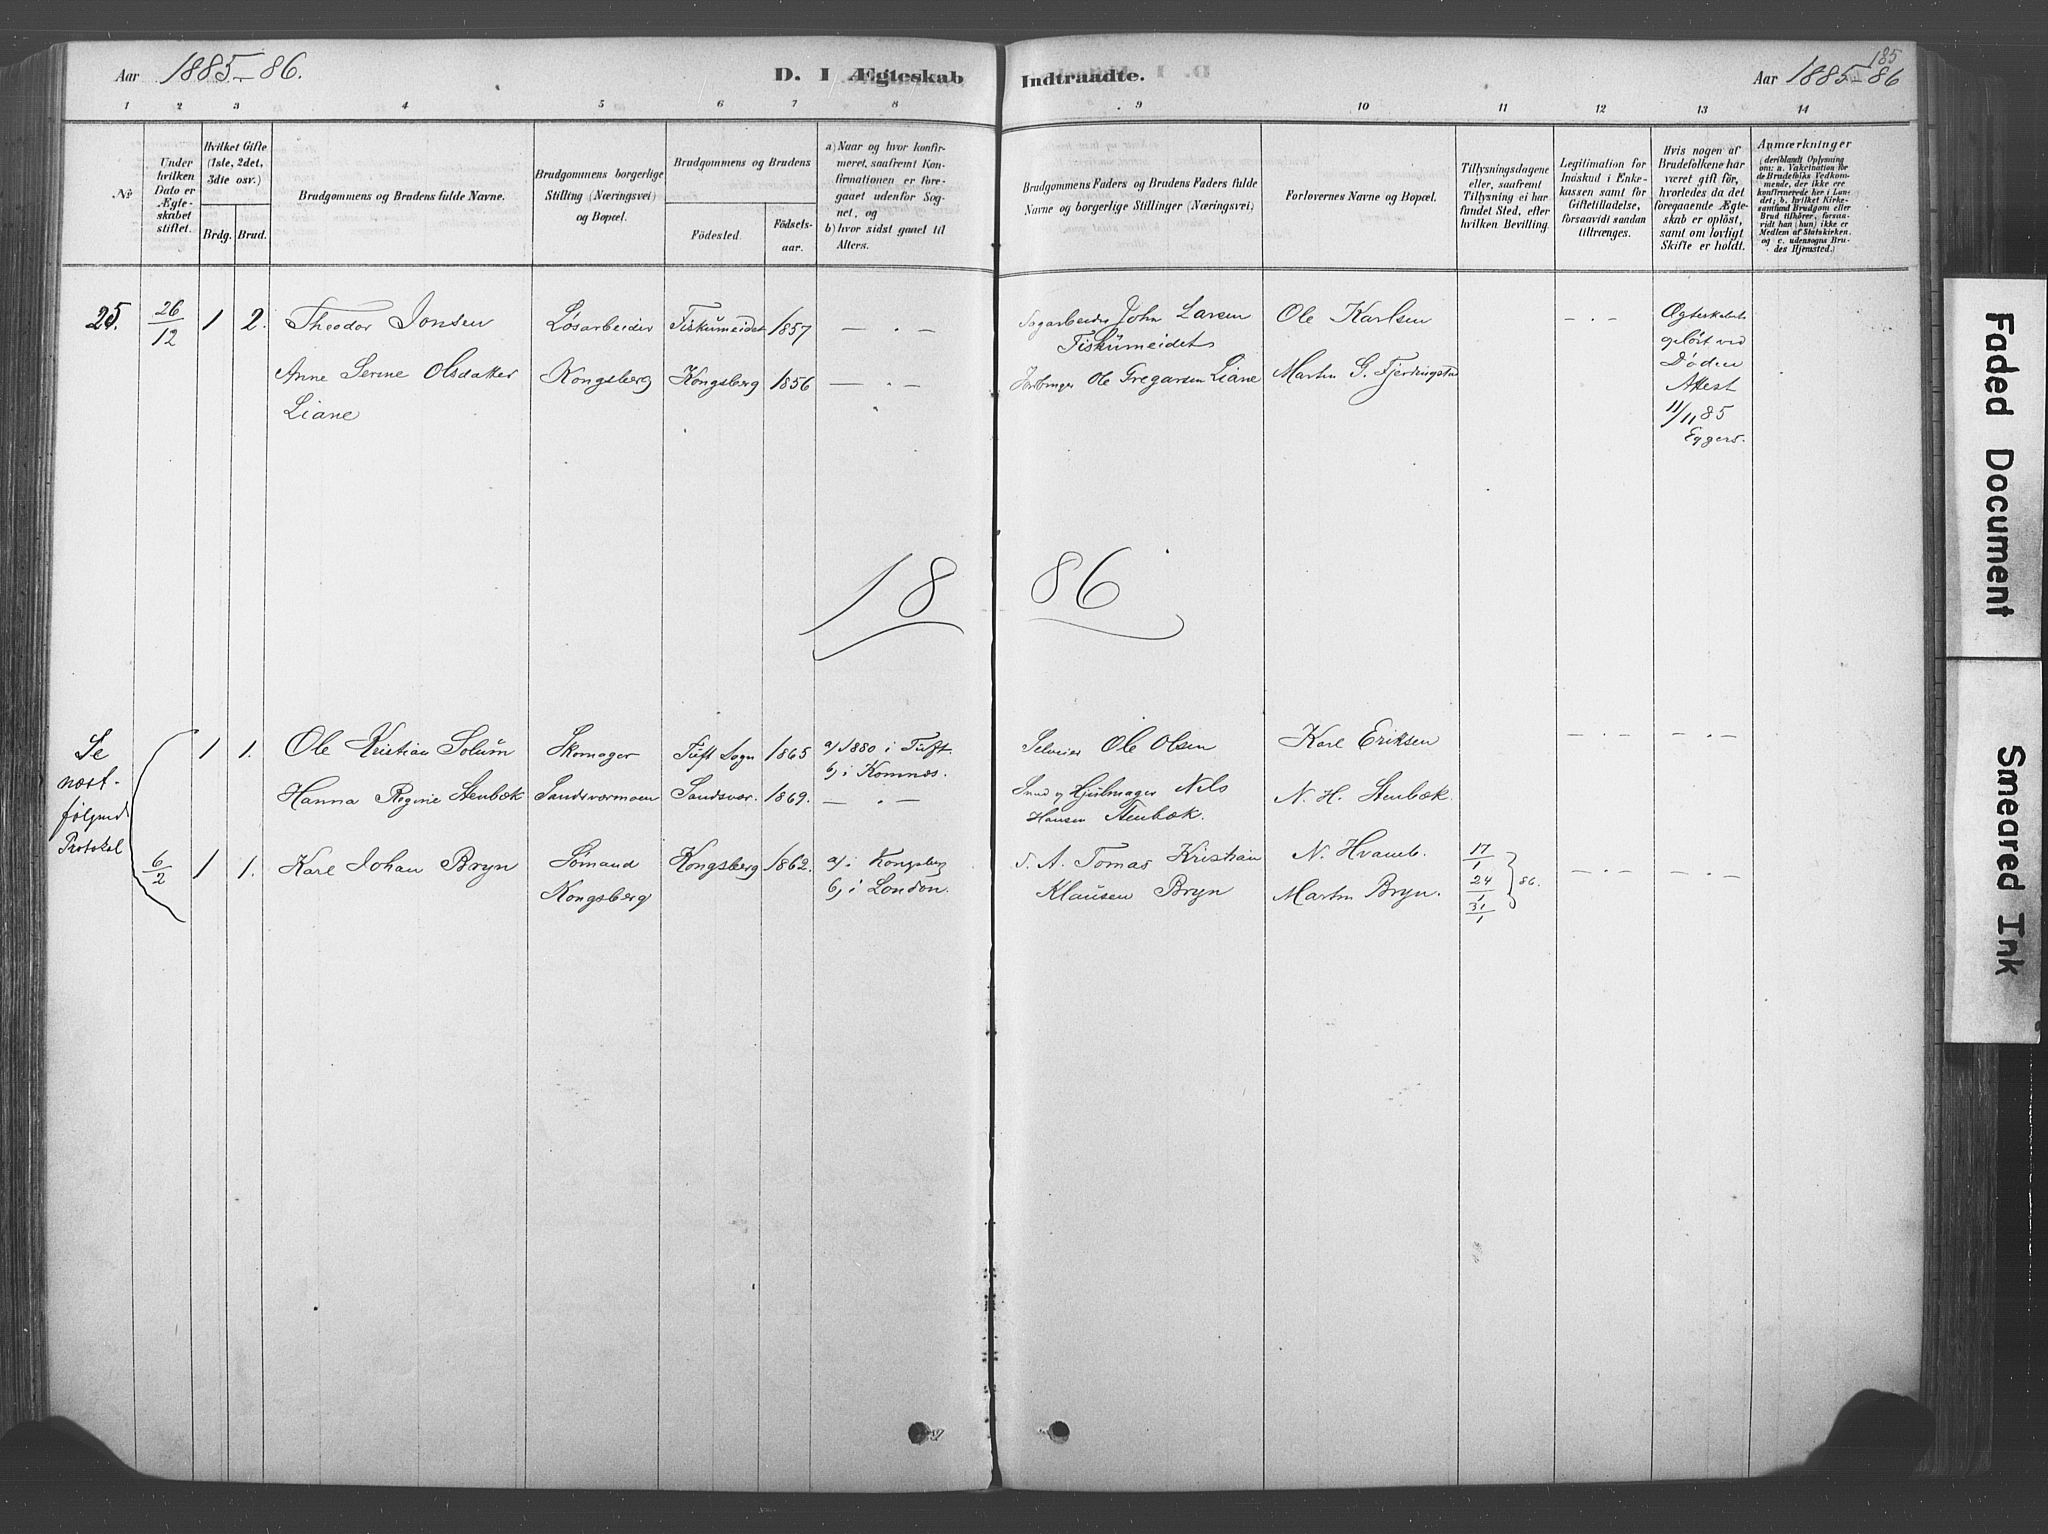 Aar 1885-86.
D. I Ægteskab Indtraadte.
185
Aar 1885-86
1 2 3 4 5 6 7 8 9 10 11 12 13 14
№
Under hvilken Dato er Ægteskabet stiftet.
Hvilket Gifte (1ste, 2det, 3die osv.)
Brdg. Brud.
Brudgommens og Brudens fulde Navne.
Brudgommens borgerlige Stilling (Næringsvei) og Bopæl.
Brudgommens og Brudens
Födested. Födselsaar.
a) Naar og hvor konfirmeret, saafremt Konfirmationen er foregaaet udenfor Sognet, og
b) hvor sidst gaaet til Alters.
Brudgommens Faders og Brudens Faders fulde Navne og borgerlige Stillinger (Næringsvei)
Forlovernes Navne og Bopæl.
Tillysningsdagene eller, saafremt Tillysning ei har fundet Sted, efter hvilken Bevilling.
Legitimation for Indskud i Enkekassen samt for Giftetilladelse, forsaavidt saadan tiltrænges.
Hvis nogen af Brudefolkene har været gift før, hvorledes da det foregaaende Ægteskab er opløst, samt om lovligt Skifte er holdt.
Anmærkninger
(deriblandt Oplysning om: a. Vakcination for de Brudefolks Vedkommende, der ikke ere konfirmerede her i Landet; b. hvilket Kirkesamfund Brudgom eller Brud tilhører, forsaavidt han (hun) ikke er Medlem af Statskirken, og c. udensogns Brudes Hjemsted.)
25. 26/12 1 2. Theodor Jonsen Løsarbeider Fiskumeidet 1857 — . — Sagarbeider John Larsen Ole Karlsen — . — Ægteskabet
Fiskumeidet opløst ved
Anne Serine Olsdatter Kongsberg Kongsberg 1856 — . — Ole Gregarsen Liane Martin G. Døden
Liane Attest
11/11 85
Eggers.
18 86
Se næst-følgende Protokol
1 1. Ole Kristian Solum Skomager Tuft Sogn 1865 a/1880 i Tuft. Selveier Ole Olsen Karl Eriksen — . — — . —
b) i Komnæs.
Hanna Regine Stenbæk Sandsværmoen Sandsvær. 1869. — . — Smed og Hjulmager Nils N. H. Stenbæk.
Hansen Stenbæk.
6/2 1 1. Karl Johan Bryn Sømand Kongsberg 1862. a) i Kongsberg Tomas Kristian N. Hvamb. 17/1 — . — — . —
Kongsberg b) i London. Klausen Bryn Martin Bryn. 24/1 86.
31/1
Faded Document
Smeared Ink